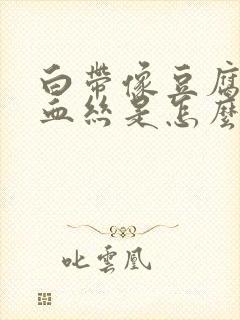 白帶像豆腐
血絲是怎麼
叱雲凰